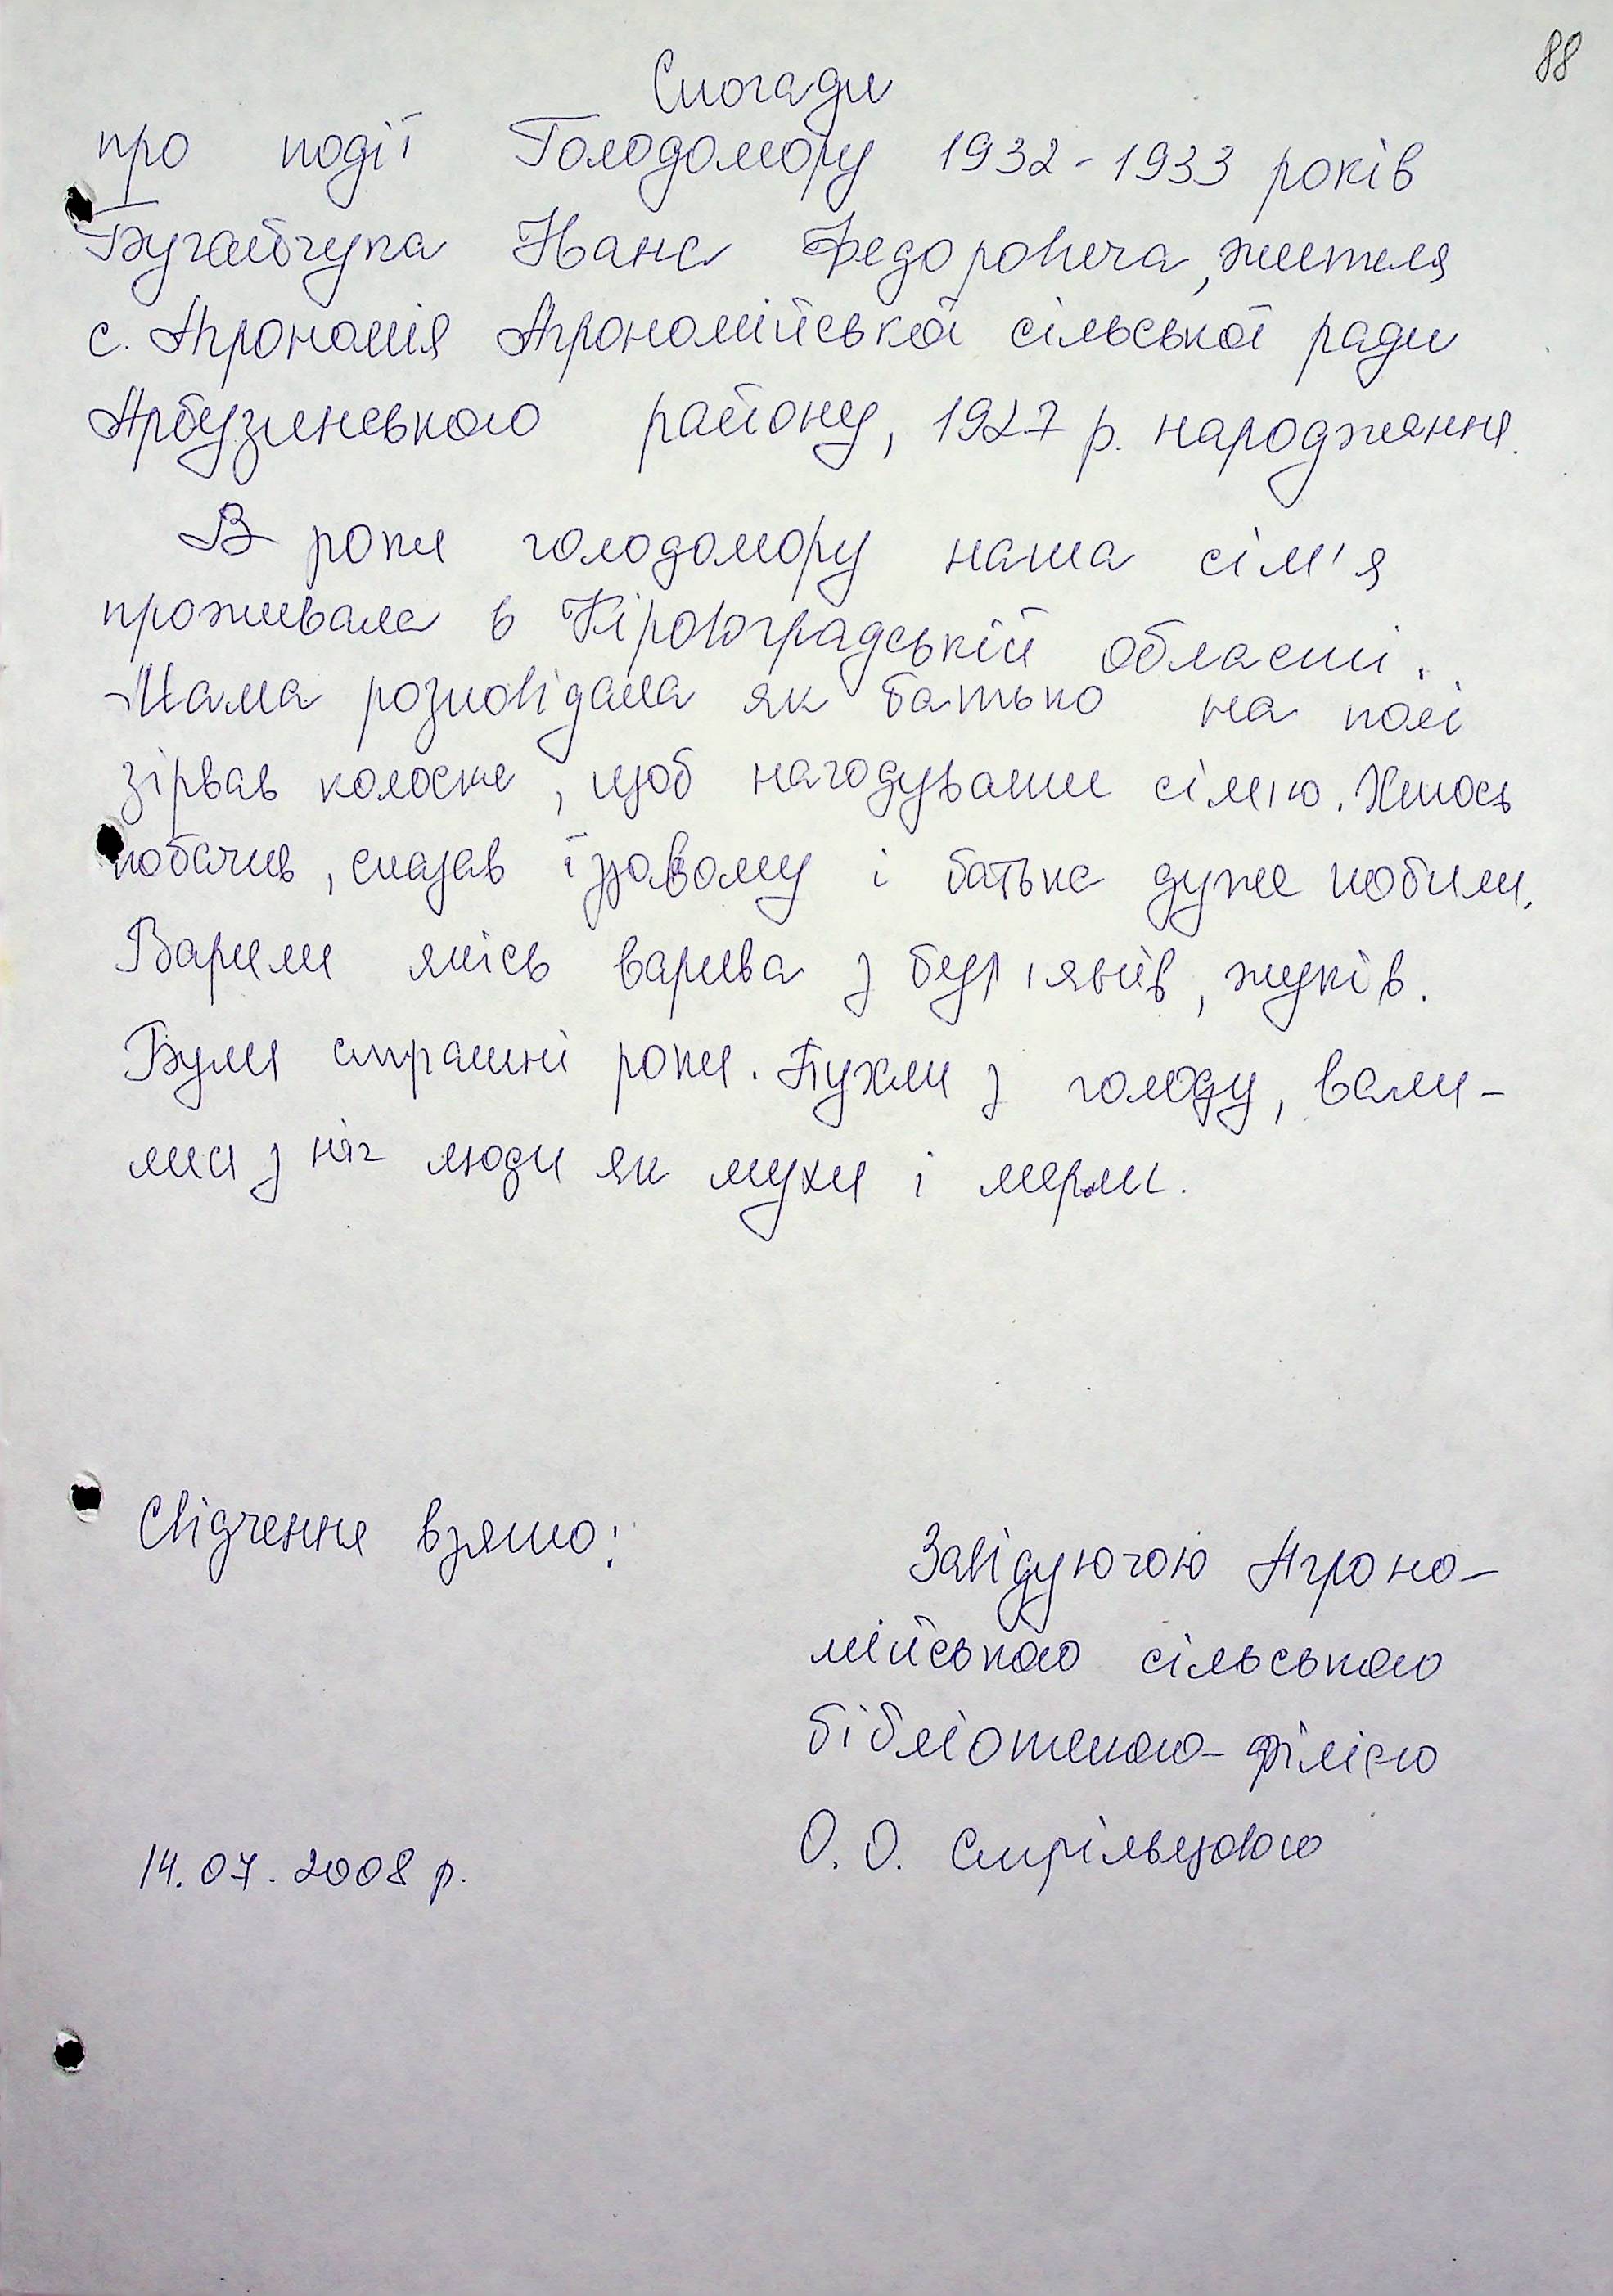 88
Спогади
про події Голодомору 1932-1933 років
Бугайчука Івана Федоровича, жителя
с. Агрономія Агрономійської сільської ради
Арбузинського району, 1927 р. народження.
В роки голодомору наша сім'я
проживала в Кіровоградській області.
Мама розповідала як батько на полі
зірвав колоски, щоб нагодувати сім'ю. Хтось
побачив, сказав їздовому і батька дуже побили.
Варили якісь варива з бур'янів, жуків.
Були страшні роки. Пухли з голоду, вали-
лися з ніг люди як мухи і мерли.
Свідчення взято:
Завідуючою Агроно-
мійською сільською
бібліотекою-філією
О. О. Стрільцовою
14.07.2008 р.